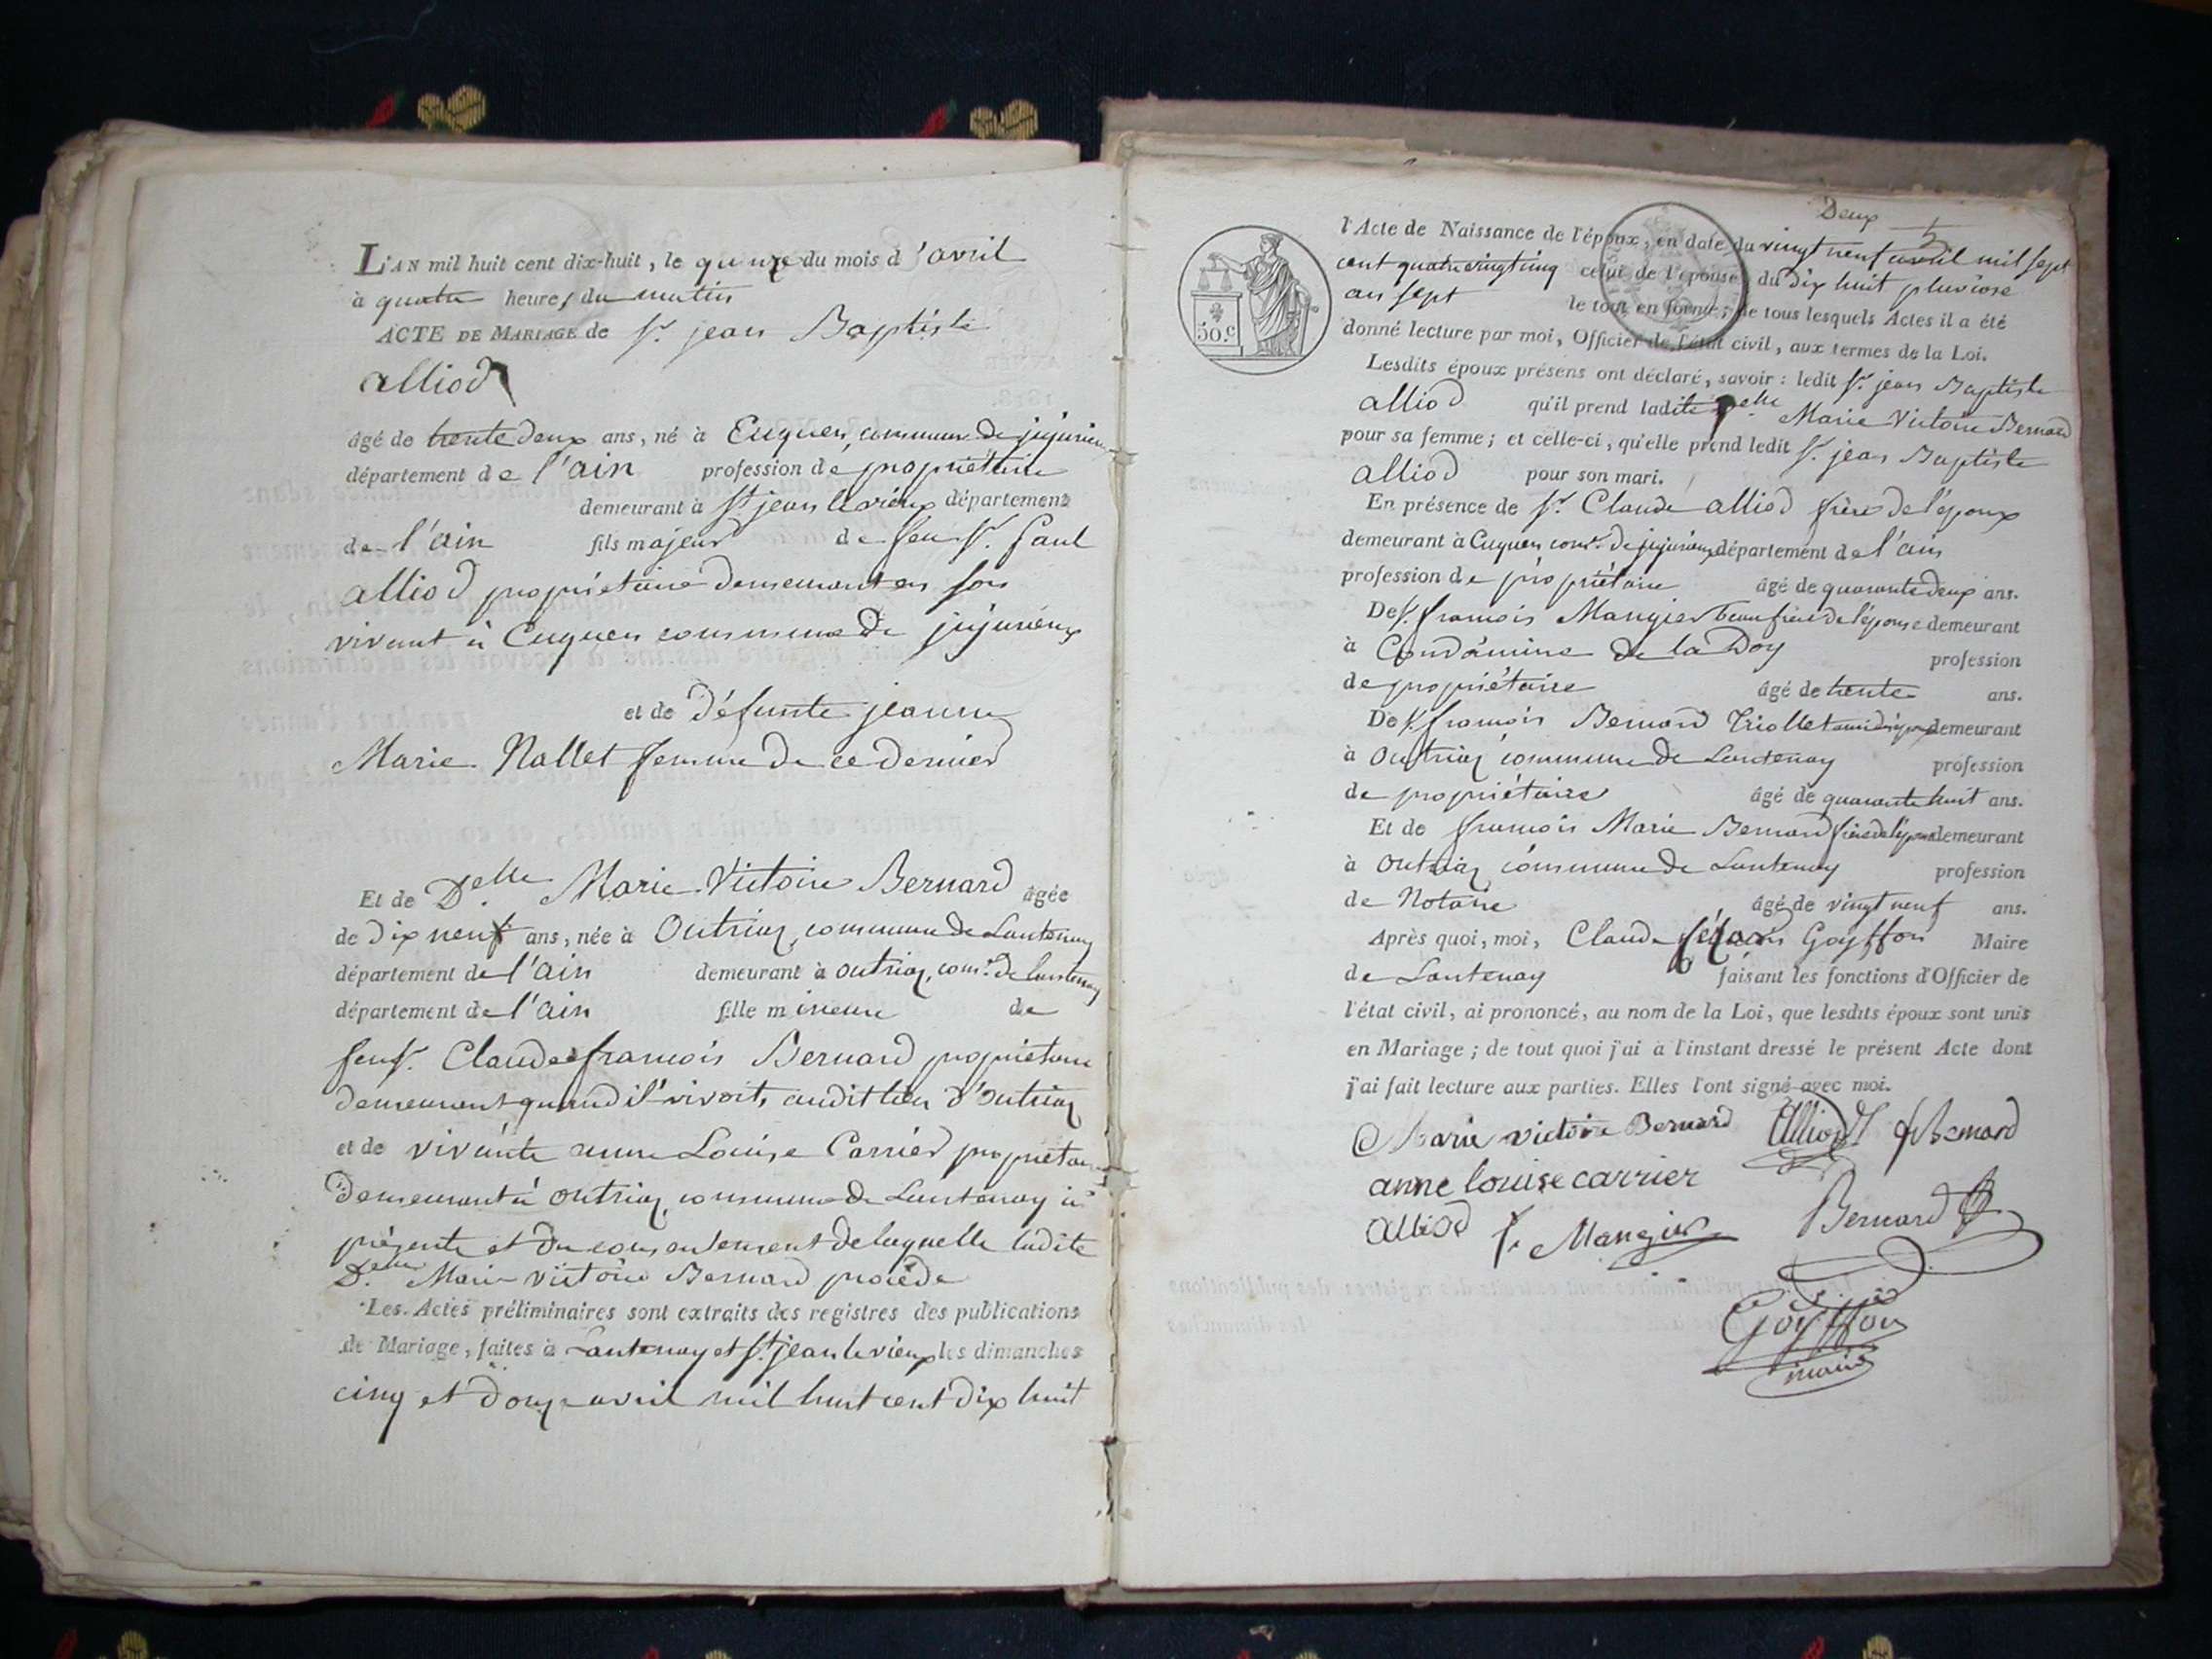 L'AN mil huit cent dix-huit, le quinze du mois d'avril
à quatre heures du matin
ACTE DE MARIAGE de Sr. jean Baptiste
alliod
âgé de trente deux ans, né à Cuquen, commune de jujurieux
département de l'ain profession de propriétaire
demeurant à St jean le vieux département
de l'ain fils majeur de feu Sr. Paul
alliod propriétaire demeurant en son
vivant à Cuquen commune de jujurieux
et de défunte jeanne
Marie Nallet femme de ce dernier
Et de Delle. Marie Victoire Bernard âgée
de dix neuf ans, née à Outriaz, commune de Lantenay
département de l'ain demeurant à outriaz, come. de lantenay
département de l'ain fille mineure de
feu Sr. Claude françois Bernard propriétaire
demeurant quand il vivoit, audit lieu d'Outriaz
et de vivante anne Louise Carrier propriétaire
demeurant à outriaz, commune de Lantenay ici
présente et du consentement de laquelle ladite
Delle. Marie Victoire Bernard procède
Les Actes préliminaires sont extraits des registres des publications
de Mariage, faites à Lantenay et St jean le vieux les dimanches
cinq et douze avril mil huit cent dix huit
Deux
50.c
l'Acte de Naissance de l'époux, en date du vingt neuf avril mil sept
cent quatrevingt cinq celui de l'épouse, du dix huit pluviose
an sept le tout en forme; de tous lesquels Actes il a été
donné lecture par moi, Officier de l'état civil, aux termes de la Loi.
Lesdits époux présens ont déclaré, savoir : ledit Sr. jean Baptiste
alliod qu'il prend ladite Delle Marie Victoire Bernard
pour sa femme; et celle-ci, qu'elle prend ledit Sr. jean Baptiste
alliod pour son mari.
En présence de Sr. Claude alliod frère de l'époux
demeurant à Cuquen come. de jujurieux département de l'ain
profession de propriétaire âgé de quarante deux ans.
De Sr. françois Mangier beau frère de l'épouse demeurant
à Condamine de la Doy profession
de propriétaire âgé de trente ans.
De Sr. françois Bernard Triollet demeurant
à Outriaz commune de Lantenay profession
de propriétaire âgé de quarante huit ans.
Et de françois Marie Bernard frère de l'épouse demeurant
à Outriaz commune de Lantenay profession
de Notaire âgé de vingt neuf ans.
Après quoi, moi, Claude Goyffon Maire
de Lantenay faisant les fonctions d'Officier de
l'état civil, ai prononcé, au nom de la Loi, que lesdits époux sont unis
en Mariage; de tout quoi j'ai à l'instant dressé le présent Acte dont
j'ai fait lecture aux parties. Elles l'ont signé avec moi.
Marie victoire Bernard Alliod f Bernard
anne louise carrier
alliod f. Mangier Bernard
Goyffon
maire